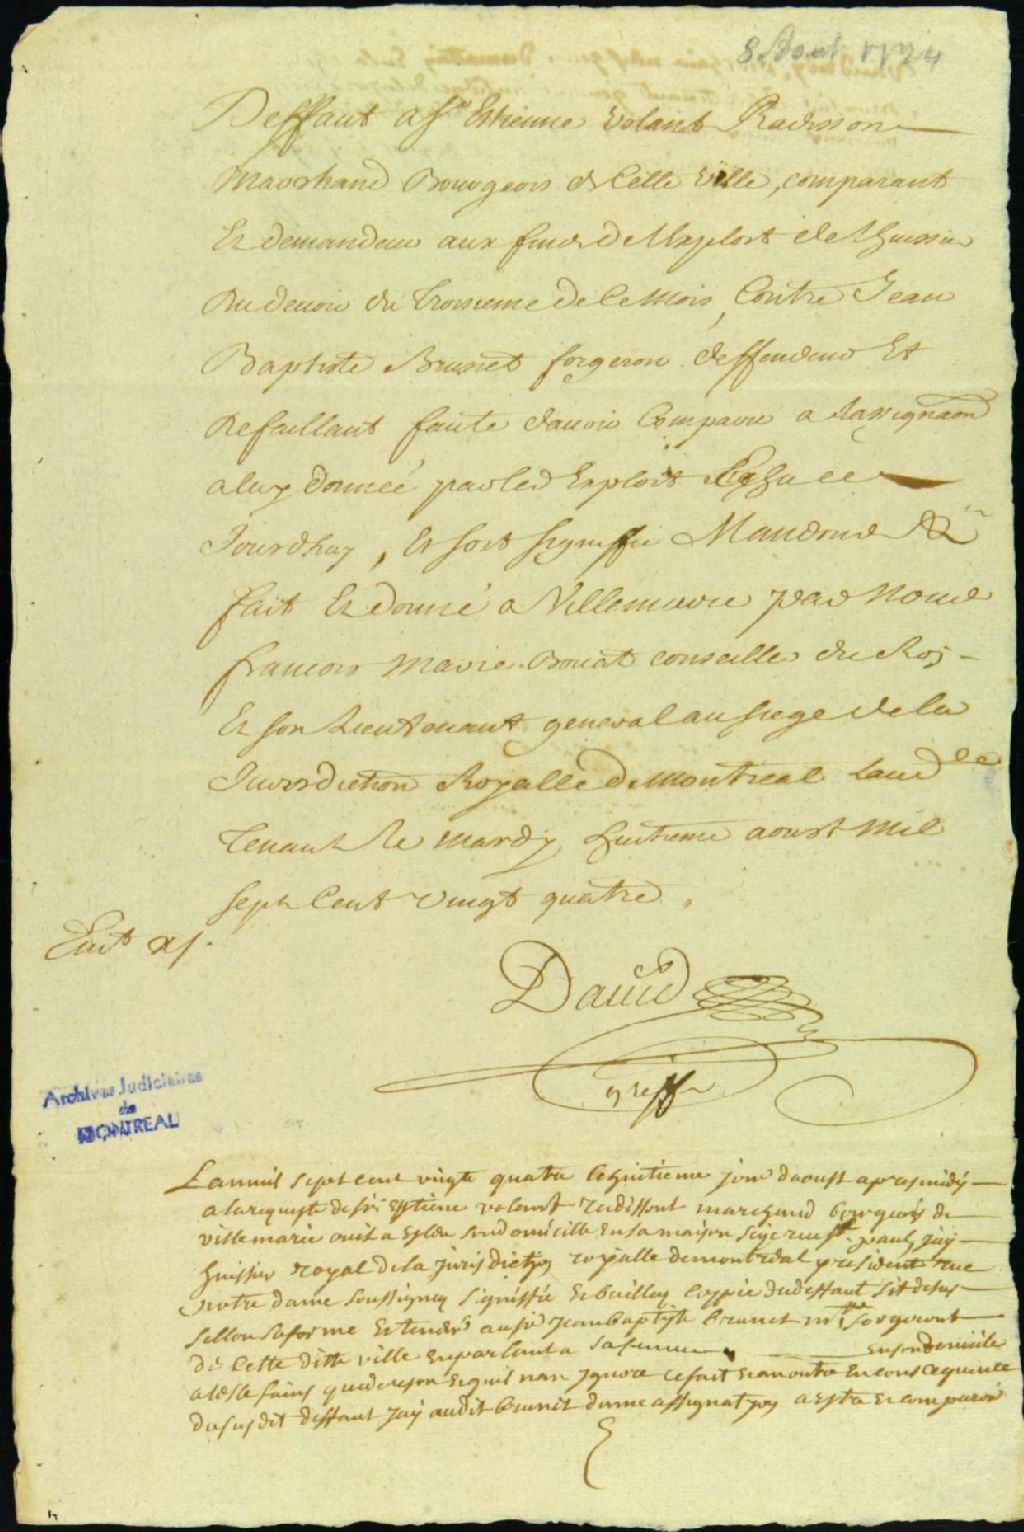 8 Aout 1724
Deffaut a Sr Estienne Volant Radisson
Marchand Bourgeois de Cette Ville, comparant
Et demandeur aux fins de lexploit de lhuissier
du troisieme de Ce Mois, Contre Jean
Baptiste Brunet forgeron deffendeur Et
Defaillant faute davoir Comparu a Lassignaon
a luy donnée par led Exploit Echu ce
Jourdhuy, Et soit signiffié Mandons &c
fait Et donné a Villemarie par Nous
francois Marie Bouat conseiller du Roy
Et son Lieutenant general au siege de la
Jurisdiction Royalle de Montreal Laud ce
Tenant Le mardy huitieme aoust Mil
Sept Cent Vingt quatre.
David
greffr
Archives Judiciaires
de
MONTREAL
Lanmil sept cent vingt quatre le huitieme jour daoust apres midy
a larequeste de sr Estiene volant radissont marchand bourgeois de
ville marie ou il a Eslu son domicille en sa maison size rue st paul, jay
huissier royal de la jurisdiction royalle demontreal resident rue
notre dame soussigney signiffié et bailley coppie dudeffaut sit desus
sellon sa forme Et teneur au sr Jean baptiste brunet mtre forgeront
de Cette ditte ville en parlant a sa femme en son domicile
a celle fains quil nan ignore ce fait Et en outre En consequence
du susdit deffaut Jay audit brunet donné assignation a Estre Et comparoir